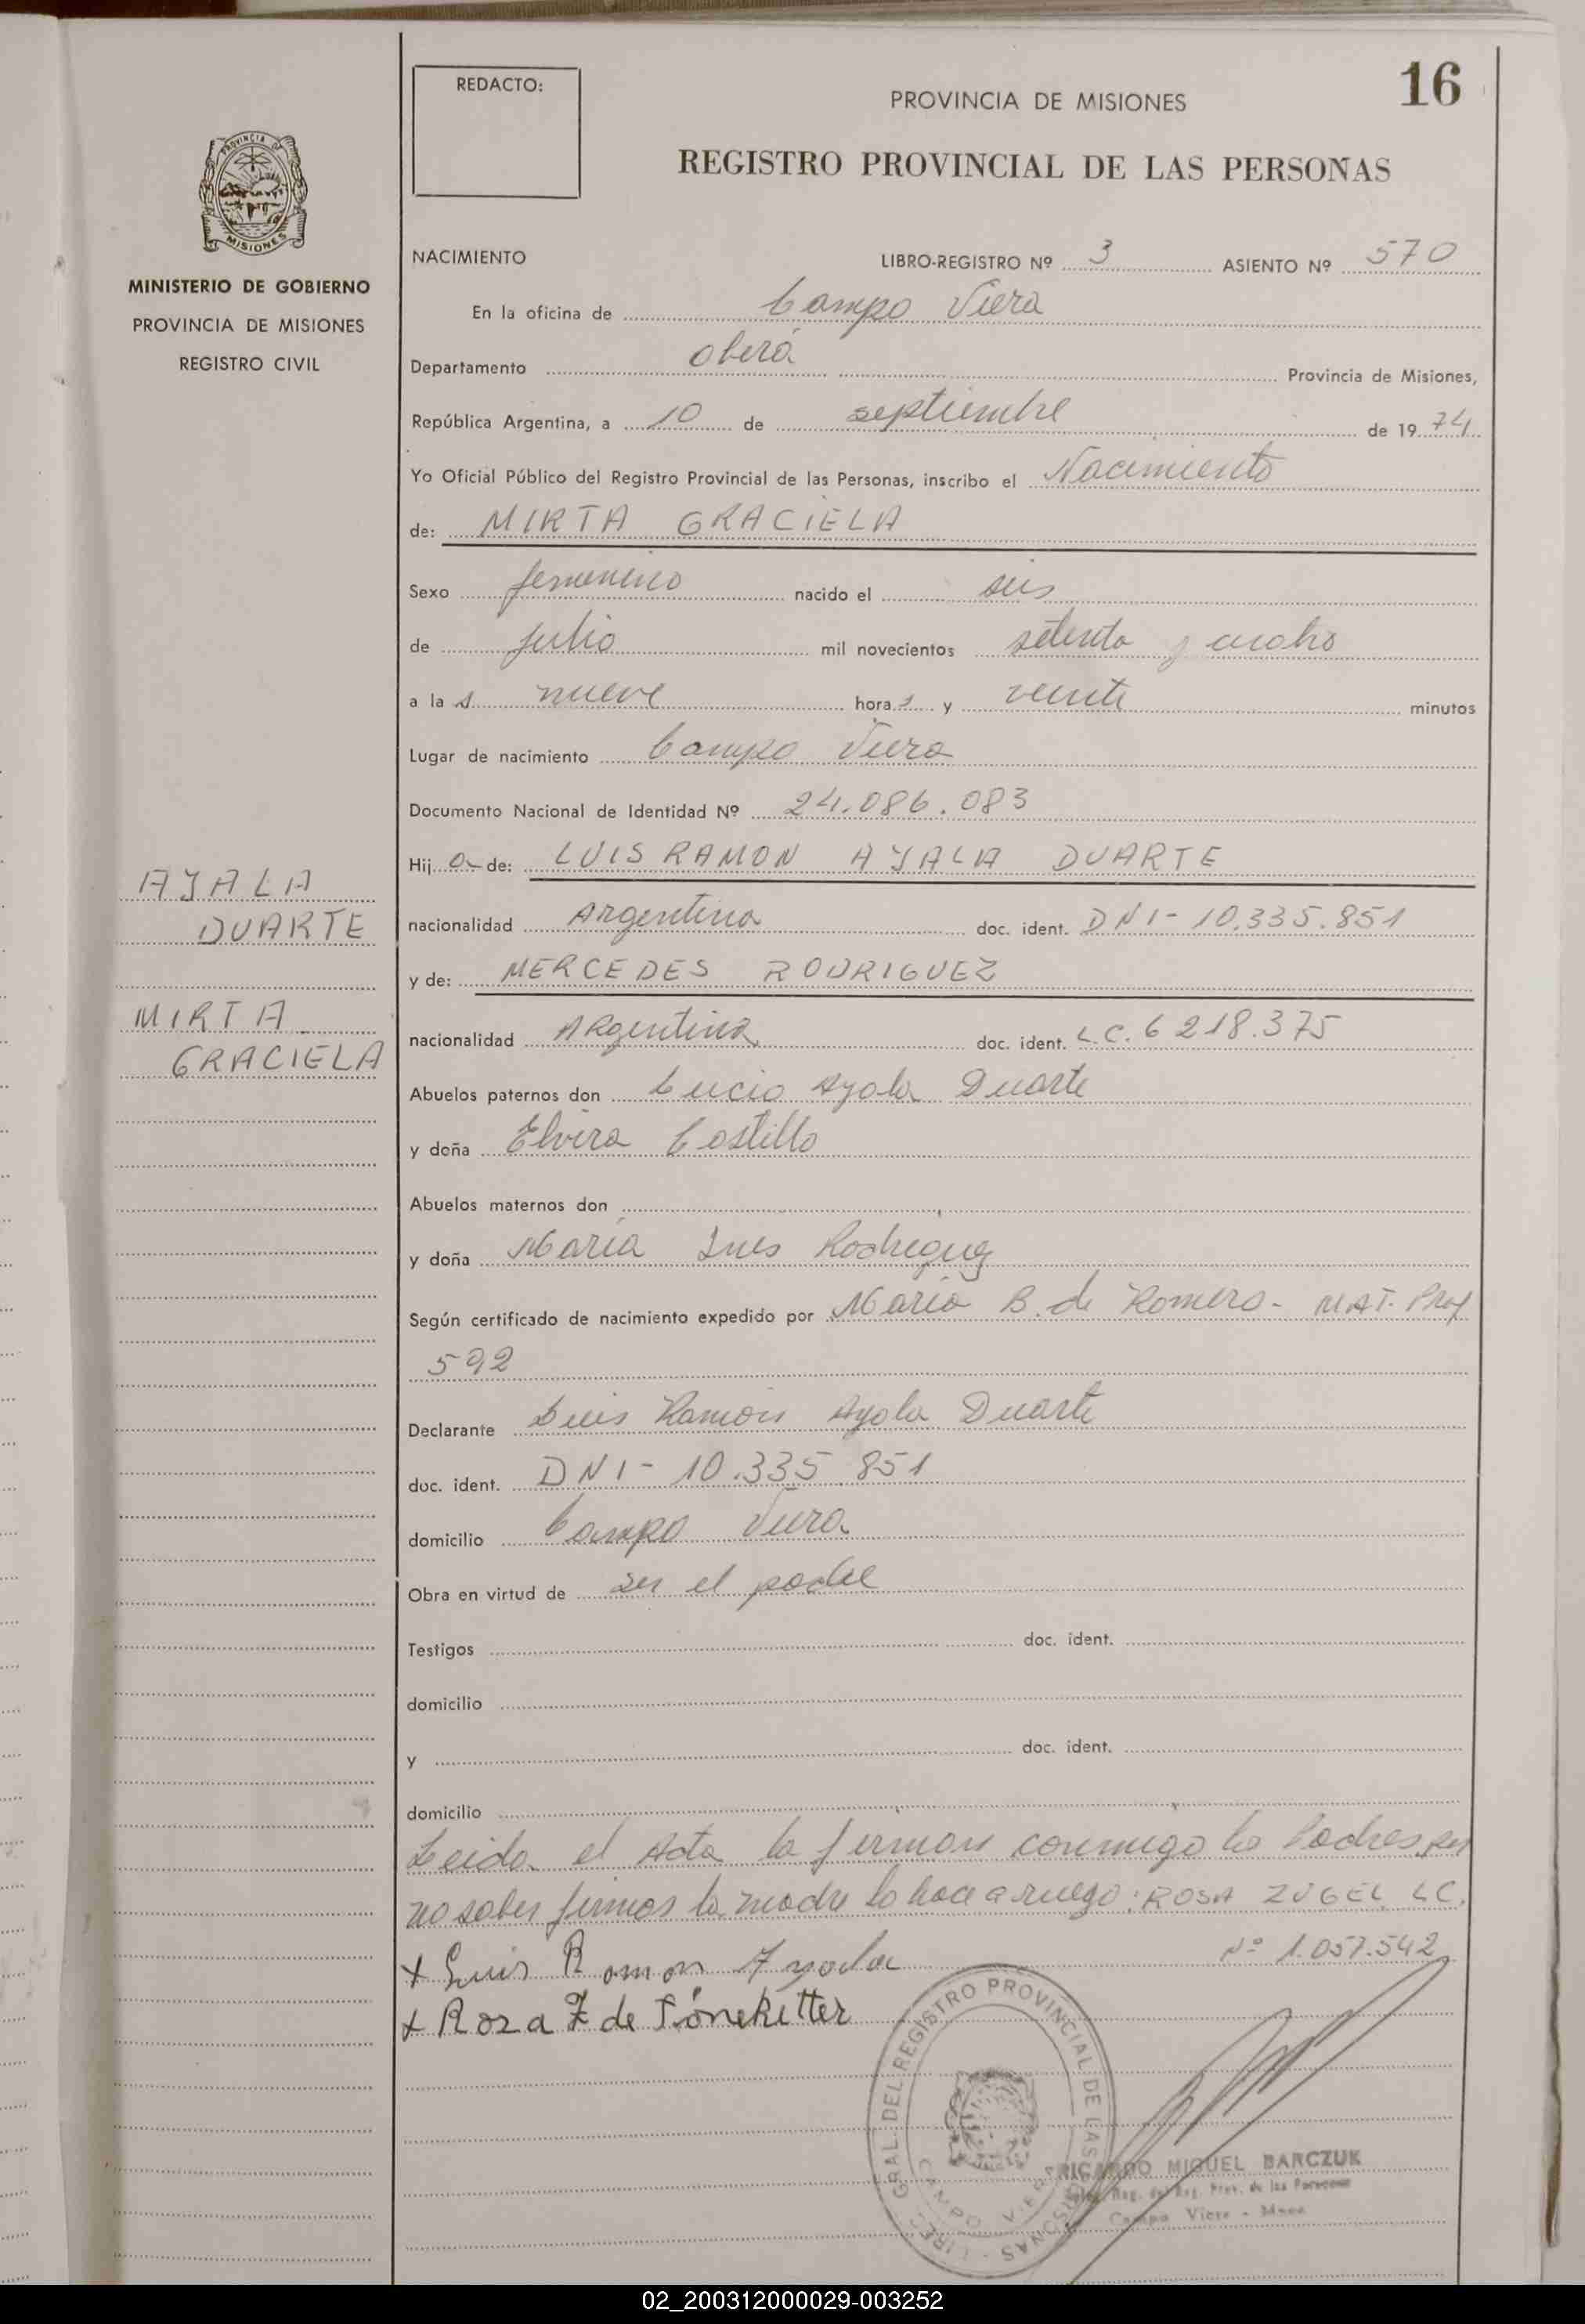 REDACTO:
16
PROVINCIA DE MISIONES
REGISTRO PROVINCIAL DE LAS PERSONAS
PROVINCIA DE
MISIONES
MINISTERIO DE GOBIERNO
PROVINCIA DE MISIONES
REGISTRO CIVIL
NACIMIENTO LIBRO-REGISTRO Nº 3 ASIENTO Nº 570
En la oficina de Campo Viera
Departamento Oberá Provincia de Misiones,
República Argentina, a 10 de septiembre de 19 74
Yo Oficial Público del Registro Provincial de las Personas, inscribo el Nacimiento
de: MIRTA GRACIELA
Sexo femenino nacido el seis
de julio mil novecientos setenta y cuatro
a la s nueve hora s y veinte minutos
Lugar de nacimiento Campo Viera
Documento Nacional de Identidad Nº 24.086.083
Hij a de: LUIS RAMON AYALA DUARTE
AYALA
DUARTE
nacionalidad Argentina doc. ident. DNI- 10.335.851
y de: MERCEDES RODRIGUEZ
MIRTA
GRACIELA
nacionalidad Argentina doc. ident. L.C. 6 218.375
Abuelos paternos don Lucio Ayala Duarte
y doña Elvira Castillo
Abuelos maternos don
y doña María Ines Rodriguez
Según certificado de nacimiento expedido por María B. de Romero - MAT. Prof
592
Declarante Luis Ramón Ayala Duarte
doc. ident. DNI- 10.335.851
domicilio Campo Viera
Obra en virtud de ser el padre
Testigos doc. ident.
domicilio
y doc. ident.
domicilio
Leida el Acta la firman conmigo los Padres, por
no saber firmar la madre lo hace a ruego: ROSA ZUGEL LC.
Nº 1.057.542
x Luis Ramon Ayala
x Rosa Z de
DIREC. GRAL. DEL REGISTRO PROVINCIAL DE LAS PERSONAS
CAMPO VIERA
RICARDO MIGUEL BARCZUK
Reg. del Reg. Prov. de las Personas
Campo Viera - Mnes
02_200312000029-003252